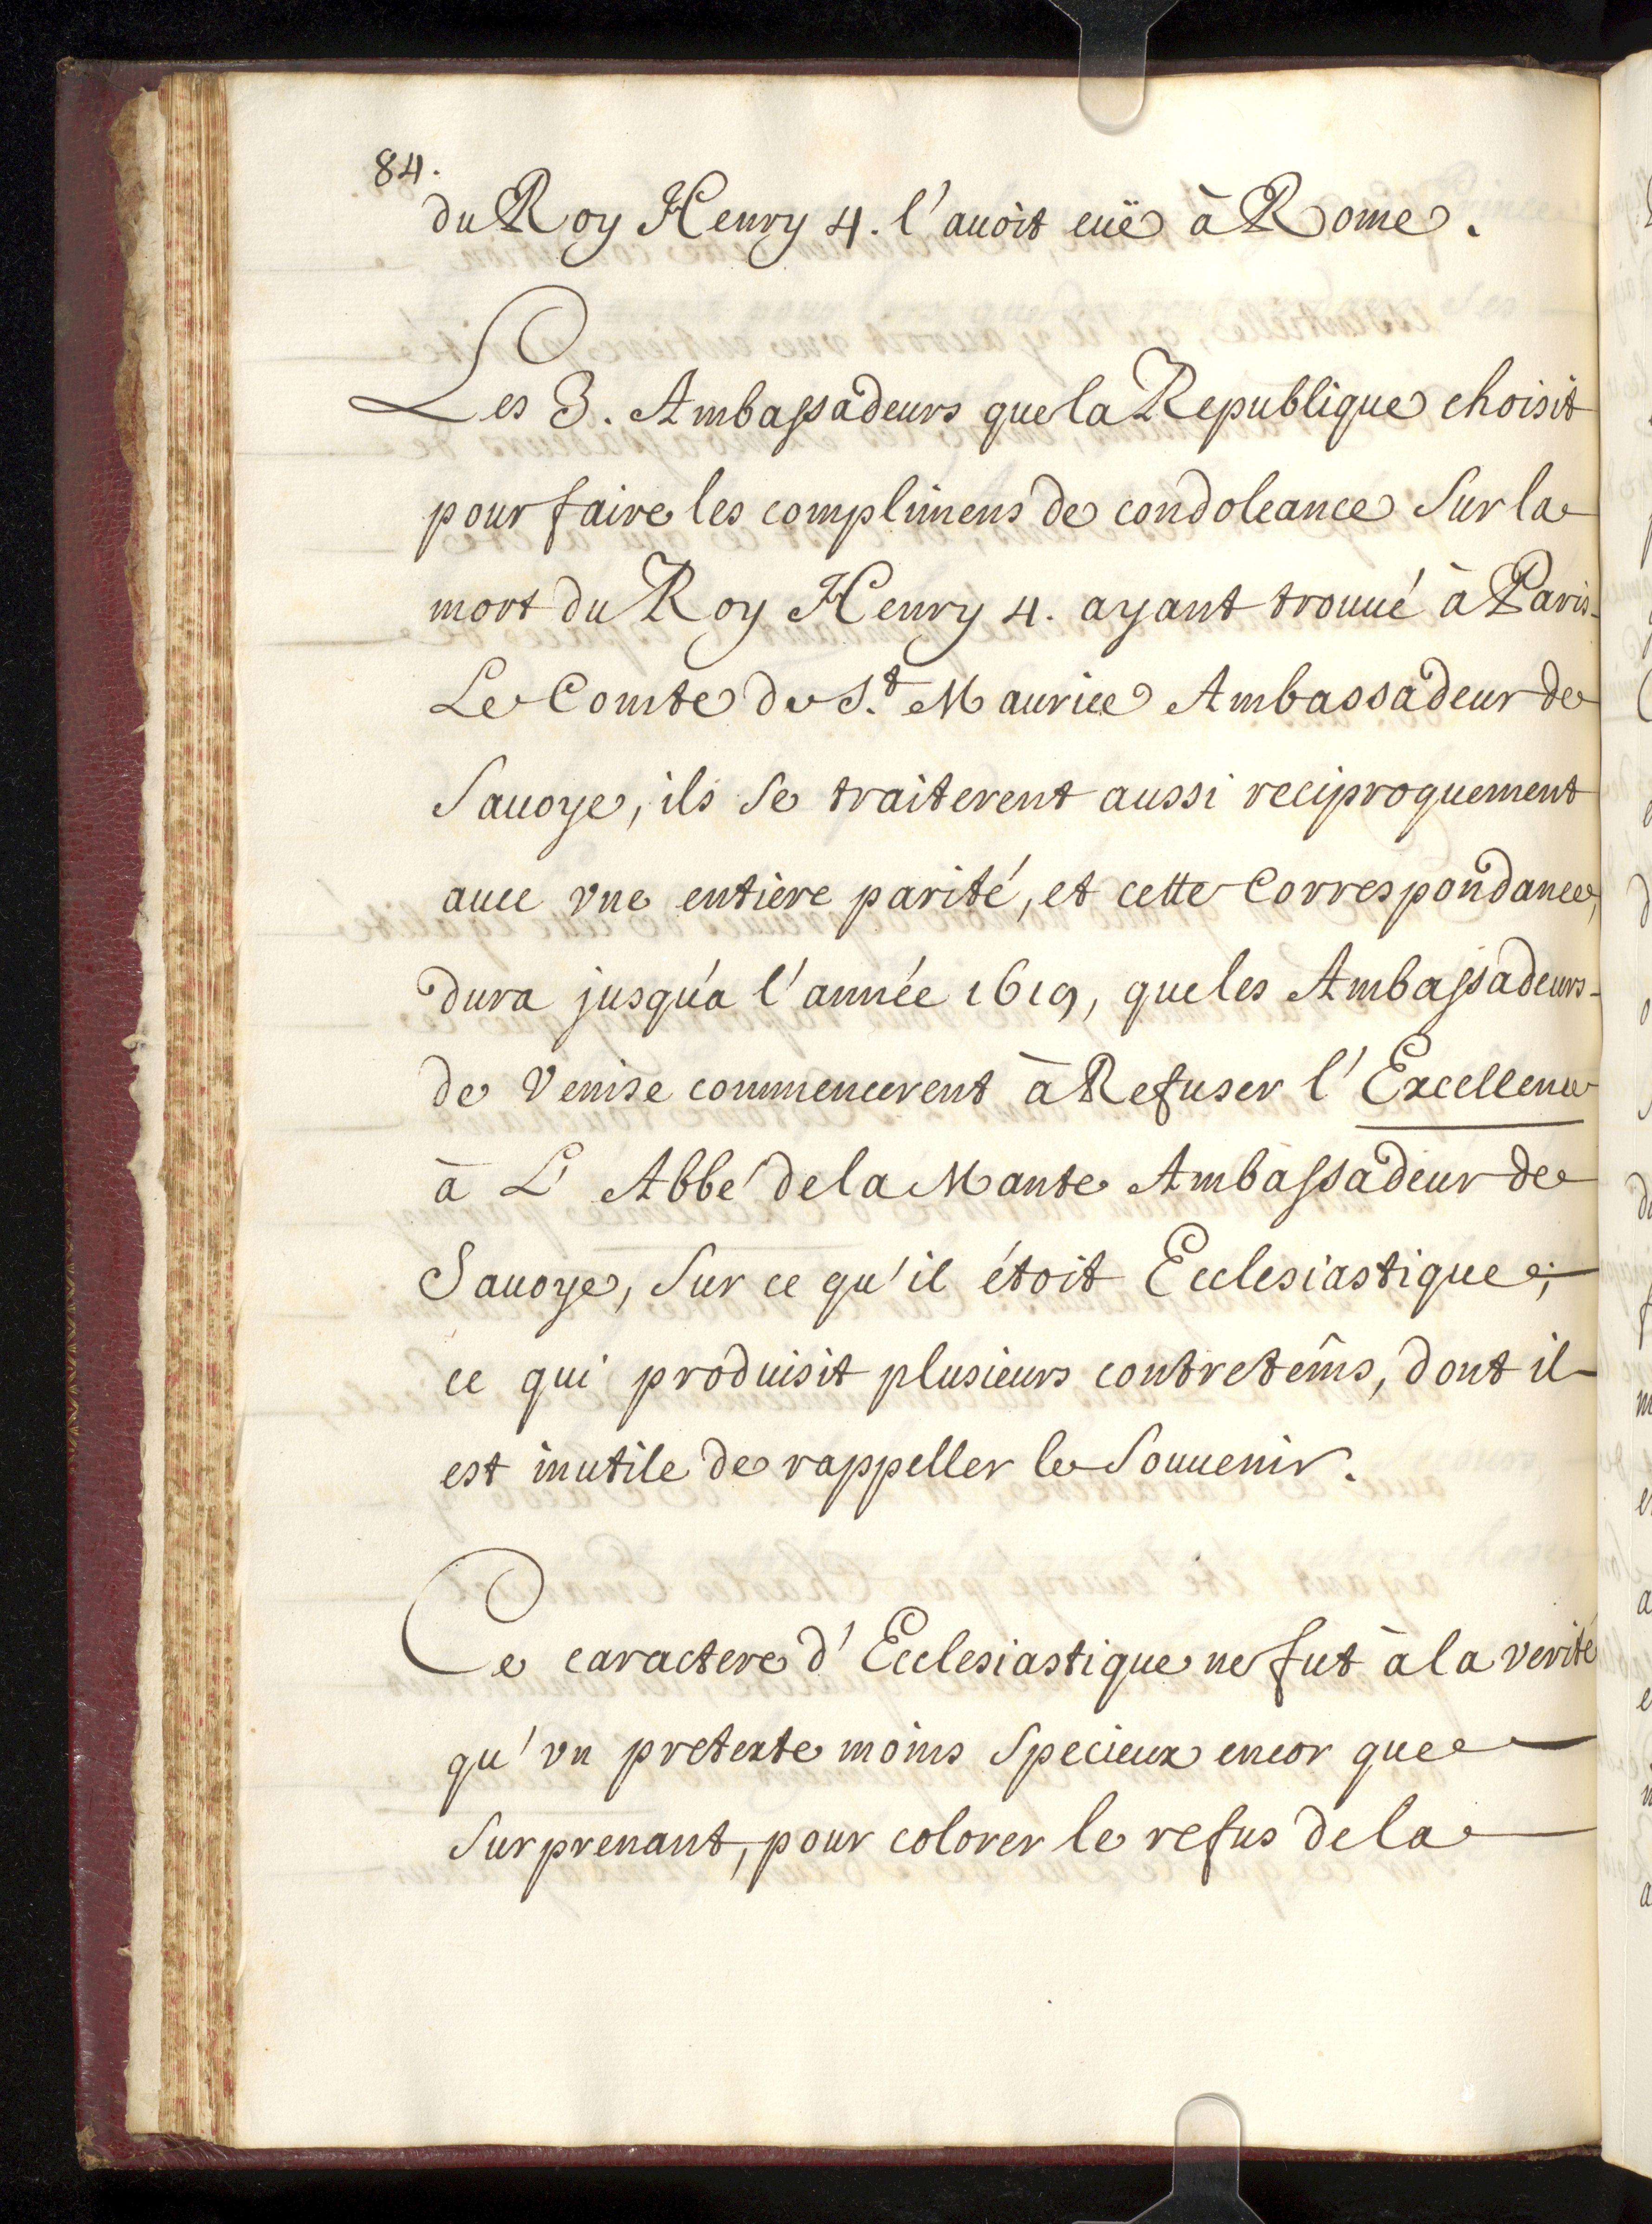 84.
du Roy Henry 4. l'auoit euë à Rome.
Les 3. Ambassadeurs que la Republique choisit
pour faire les complimens de condoleance Sur la
mort du Roy Henry 4. ayant trouué à Paris
Le Comte de S.t Maurice Ambassadeur de
Sauoye, ils Se traiterent aussi reciproquement
auec vne entière parité, et cette Correspondance,
dura jusqu'a l'année 1619, que les Ambassadeurs
de Venise commencerent à Refuser l'Excellence
à L'Abbé de la Mante Ambassadeur de
Sauoye, Sur ce qu'il étoit Ecclesiastique;
ce qui produisit plusieurs contretem̂s, dont il
est inutile de rappeller le Souuenir.
Ce caractere d'Ecclesiastique ne fut à la verité
qu'vn pretexte moins Specieux encor que
Surprenant, pour colorer le refus de la